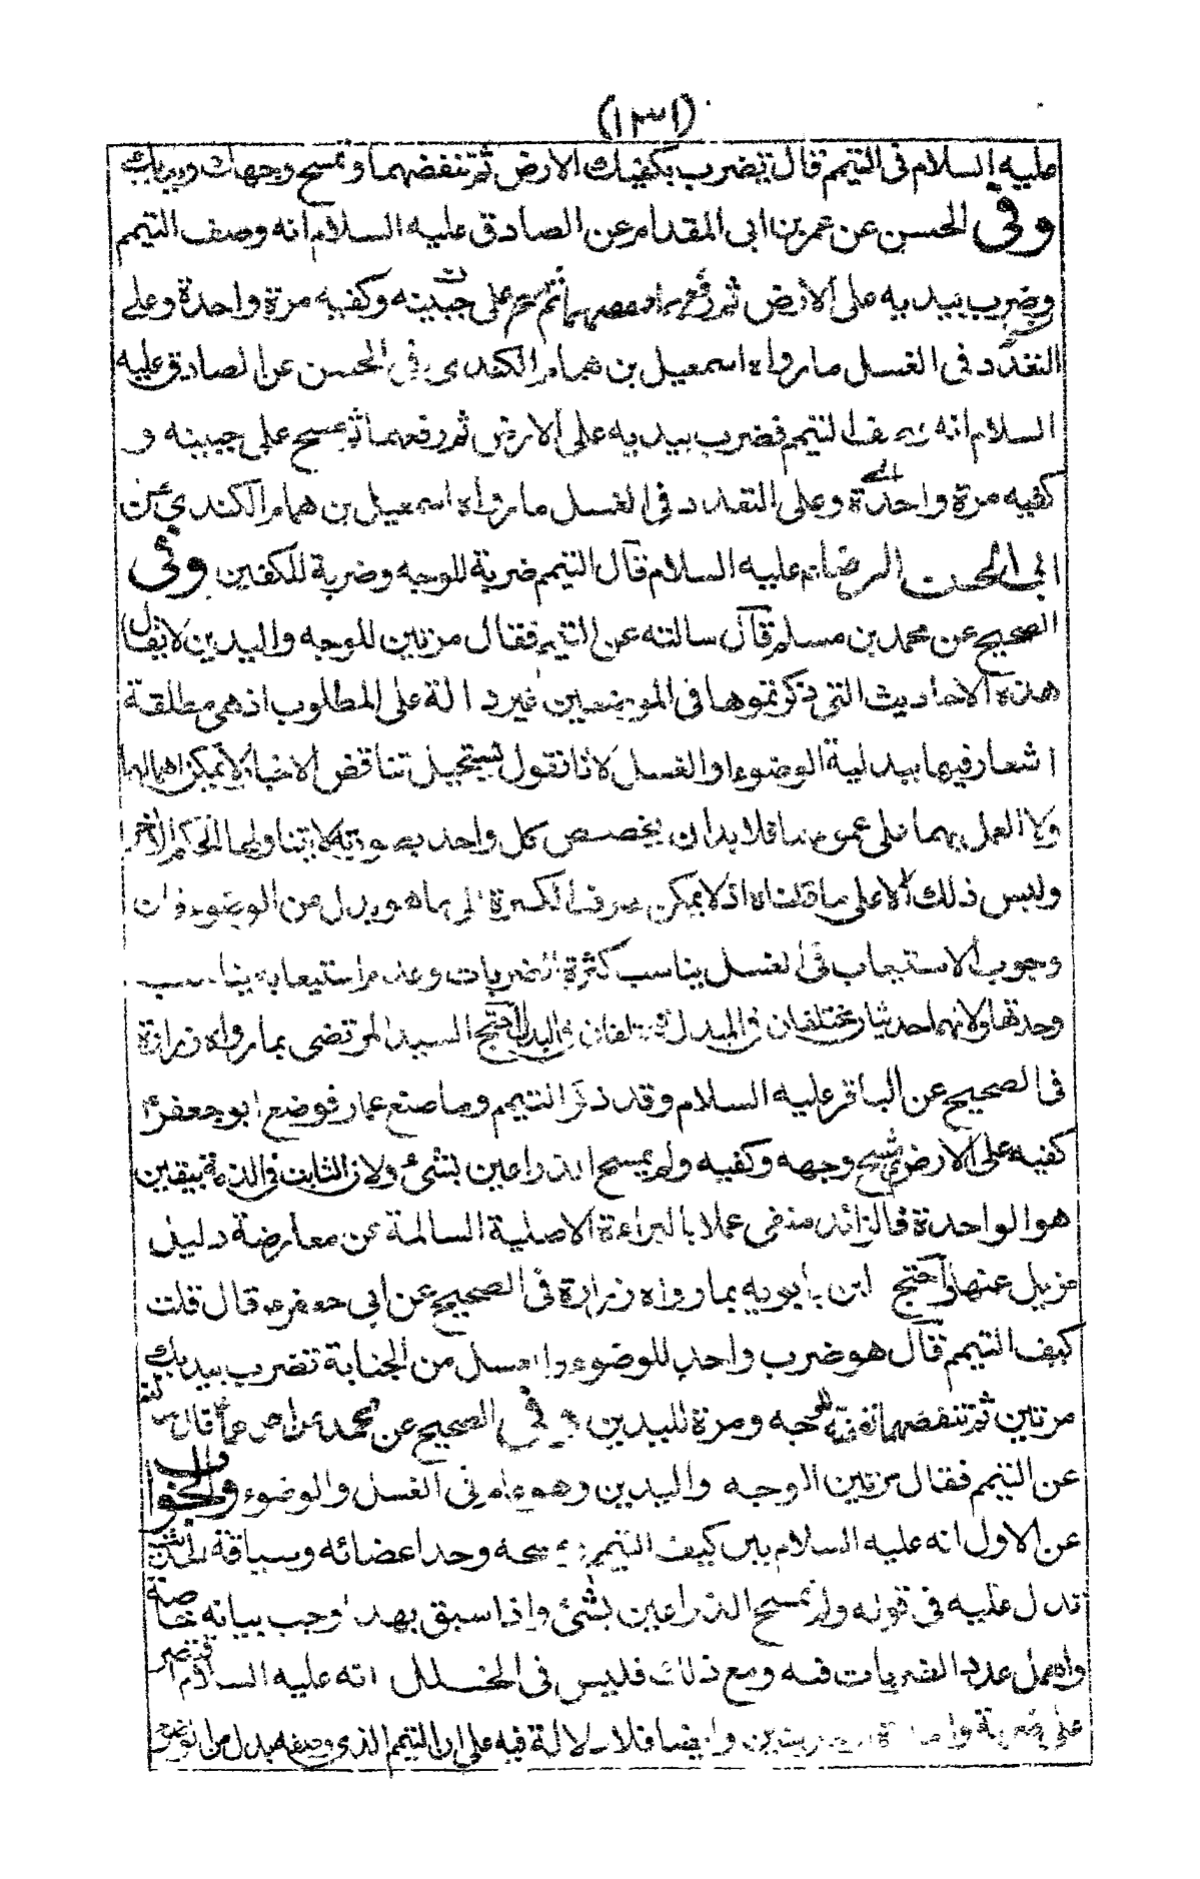 (١٣١)
عليه السلام فى التيمم قال تضرب بكفيك الارض ثم تنفضهما وتمسح وجهك ويديك
وفى الحسن عن عمر بن ابى المقدام عن الصادق عليه السلام انه وصف التيمم
وضرب بيديه على الارض ثم رفعهما فنفضهما ثم مسح على جبينه وكفيه مرة واحدة وعلى
التعدد فى الغسل ما رواه اسمعيل بن همام الكندى وفى الحسن عن الصادق عليه
السلام انه وصف التيمم فضرب بيديه على الارض ثم رفعهما ثم مسح على جبينه و
كفيه مرة واحدة وعلى التعدد فى الغسل ما رواه اسمعيل بن همام الكندي عن
ابى الحسن الرضا عليه السلام قال التيمم ضربة للوجه وضربة للكفين وفى
الصحيح عن محمد بن مسلم قال سالته عن التيمم فقال مرتين للوجه واليدين لا يقال
هذه الاحاديث التى ذكرتموها فى الموضعين غير دالة على المطلوب اذ هى مطلقة
اشعار فيها ببدلية الوضوء او الغسل لانا نقول يستحيل تناقض الاخبار ولا يمكن اهمالها
ولا العمل بهما على عمومها فلا بد ان يخصص كل واحد بصورة لا يتناولها الحكم الاخر
وليس ذلك الا على ما قلناه اذ لا يمكن صرف الكثرة الى ما هو بدل من الوضوء فان
وجوب الاستيعاب فى الغسل يناسب كثرة الضربات وعدم استيعابه يناسب
وحدتها ولانهما حدثان مختلفان فى المبدل فيختلفان فى البدل احتج السيد المرتضى بما رواه زرارة
فى الصحيح عن الباقر عليه السلام وقد ذكر التيمم وما صنع عمار فوضع ابو جعفر ع
كفيه على الارض ثم مسح وجهه وكفيه ولم يمسح الذراعين بشئ ولان الثابت فى الذمة بيقين
هو الواحدة فالزائد منفى عملا بالبراءة الاصلية السالمة عن معارضة دليل
مزيل عنها واحتج ابن بابويه بما رواه زرارة فى الصحيح عن ابى جعفر ع قال قلت
كيف التيمم قال هو ضرب واحد للوضوء والغسل من الجنابة تضرب بيديك
مرتين ثم تنفضهما نفضة للوجه ومرة لليدين و فى الصحيح عن محمد عن احدهما قال سالته
عن التيمم فقال مرتين الوجه واليدين وهو عام فى الغسل والوضوء والجواب
عن الاول انه عليه السلام بين كيف التيمم مسحه وحد اعضائه وسياقة الحديث
تدل عليه فى قوله ولم تمسح الذراعين بشئ واذا سبق بهذا وجب بيانه خاصة
واهمل عدد الضربات فيه ومع ذلك فليس فى انه عليه السلام اقتصر
على ضربة واحدة ضربتين وايضا فلا دلالة فيه على ان التيمم الذى وصفه بدل من الوضوء